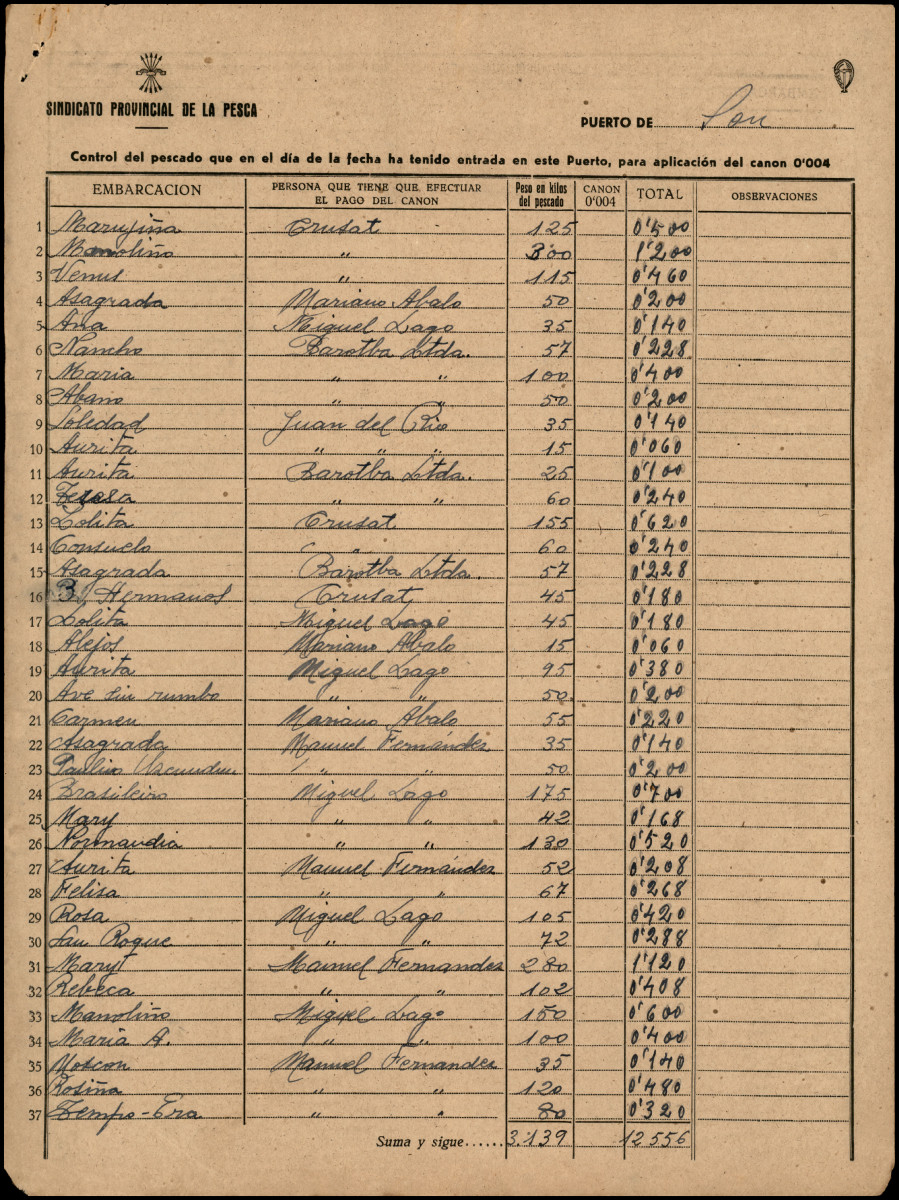 SINDICATO PROVINCIAL DE LA PESCA
PUERTO DE Son
Control del pescado que en el día de la fecha ha tenido entrada en este Puerto, para aplicación del canon 0'004
EMBARCACION PERSONA QUE TIENE QUE EFECTUAR EL PAGO DEL CANON Peso en kilos del pescado CANON 0'004 TOTAL OBSERVACIONES
1 Marujiña Crusat 125 0'500
2 Manoliño " 300 1'200
3 Venus " 115 0'460
4 Asagrada Mariano Abalo 50 0'200
5 Ana Miguel Lago 35 0'140
6 Nancho Barotba Ltda. 57 0'228
7 Maria " " 100 0'400
8 Abano " " 50 0'200
9 Soledad Juan del Rio 35 0'140
10 Aurita " " " 15 0'060
11 Aurita Barotba Ltda. 25 0'100
12 Teresa " " 60 0'240
13 Lolita Crusat 155 0'620
14 Consuelo " 60 0'240
15 Asagrada Barotba Ltda. 57 0'228
16 3 Hermanos Crusat 45 0'180
17 Lolita Miguel Lago 45 0'180
18 Alejos Mariano Abalo 15 0'060
19 Aurita Miguel Lago 95 0'380
20 Ave sin rumbo " " 50 0'200
21 Carmen Mariano Abalo 55 0'220
22 Asagrada Manuel Fernández 35 0'140
23 Paulino " " 50 0'200
24 Brasileiro Miguel Lago 175 0'700
25 Mary " " 42 0'168
26 Normandia " " 130 0'520
27 Aurita Manuel Fernández 52 0'208
28 Felisa " " 67 0'268
29 Rosa Miguel Lago 105 0'420
30 San Roque " " 72 0'288
31 Mary Manuel Fernandez 280 1'120
32 Rebeca " " 102 0'408
33 Manoliño Miguel Lago 150 0'600
34 Maria A. " " 100 0'400
35 Moscon Manuel Fernandez 35 0'140
36 Rosiña " " 120 0'480
37 Tempo-Era " " 80 0'320
Suma y sigue...... 3.139 12 556